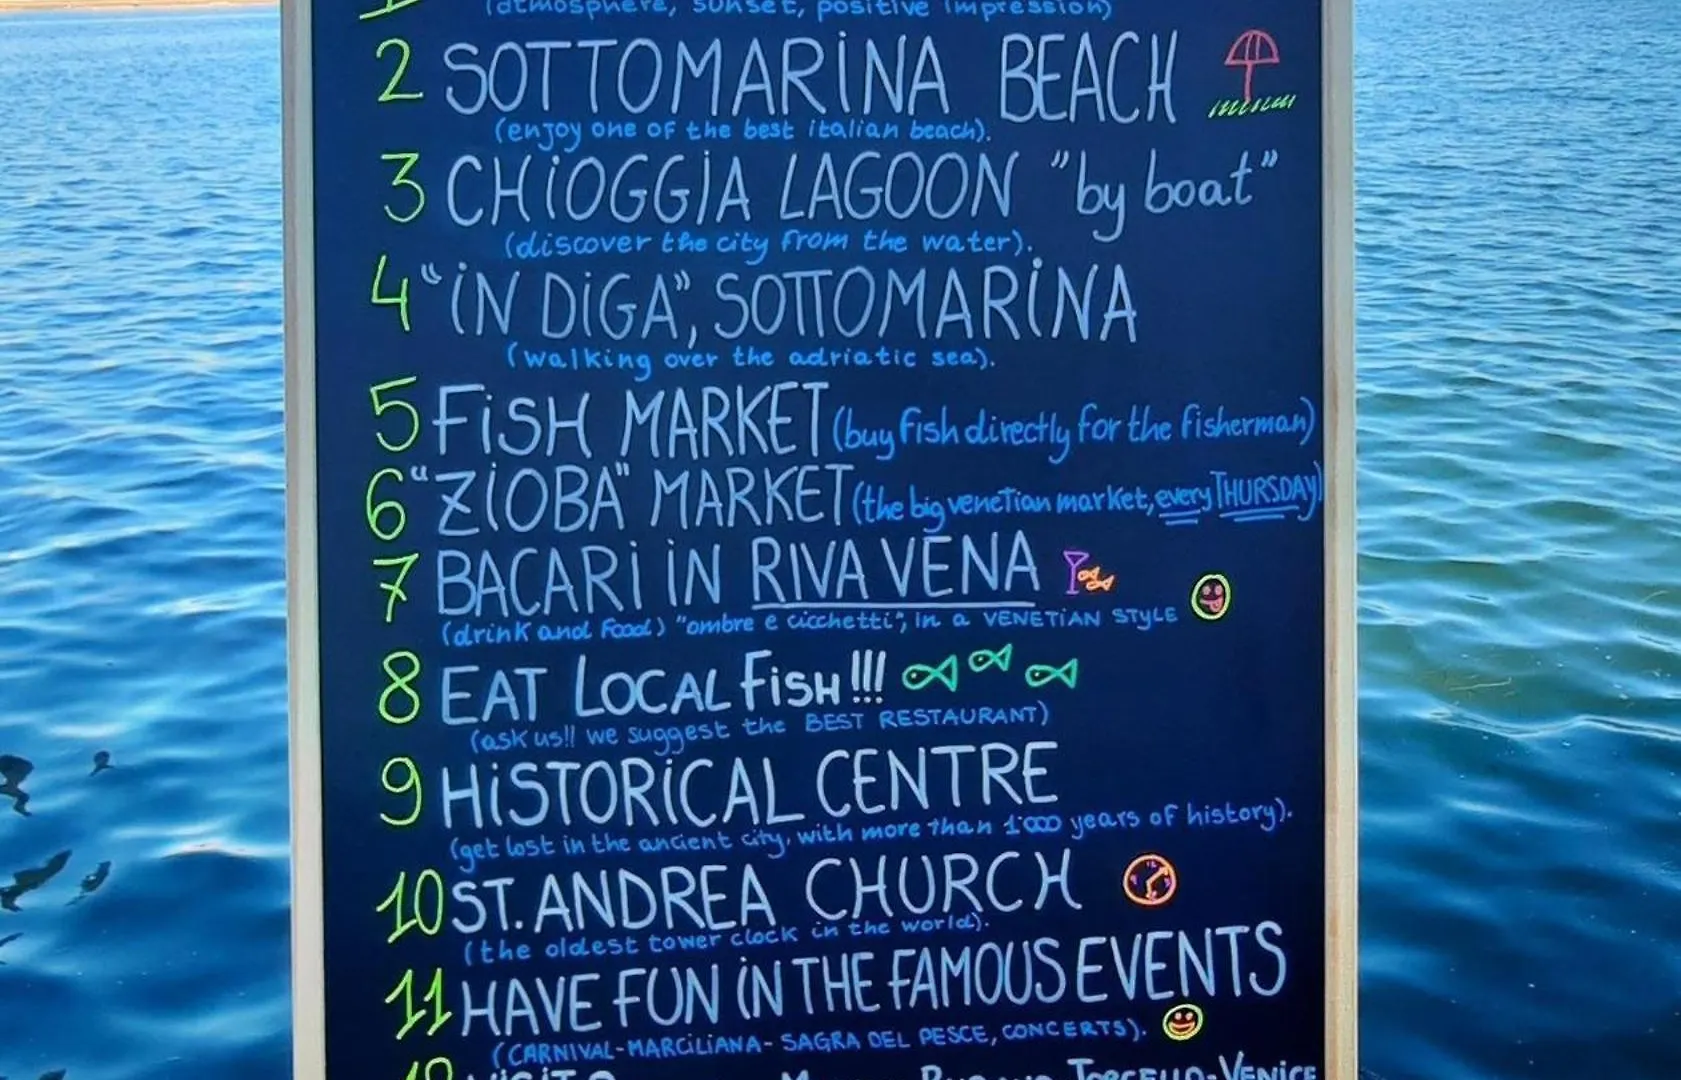 1
(atmosphere, sunset, positive impression)
2 SOTTOMARINA BEACH
(enjoy one of the best italian beach).
3 CHIOGGIA LAGOON "by boat"
(discover the city from the water).
4 "IN DIGA", SOTTOMARINA
(walking over the adriatic sea).
5 FISH MARKET (buy fish directly for the fisherman)
6 "ZIOBA" MARKET (the big venetian market, every THURSDAY)
7 BACARI IN RIVA VENA
(drink and food) "ombre e cicchetti", in a VENETIAN STYLE
8 EAT LOCAL FISH!!!
(ask us!! we suggest the BEST RESTAURANT)
9 HISTORICAL CENTRE
(get lost in the ancient city, with more than 1'000 years of history).
10 ST. ANDREA CHURCH
(the oldest tower clock in the world).
11 HAVE FUN IN THE FAMOUS EVENTS
(CARNIVAL-MARCILIANA- SAGRA DEL PESCE, CONCERTS).
12 VISIT TORCELLO-VENICE